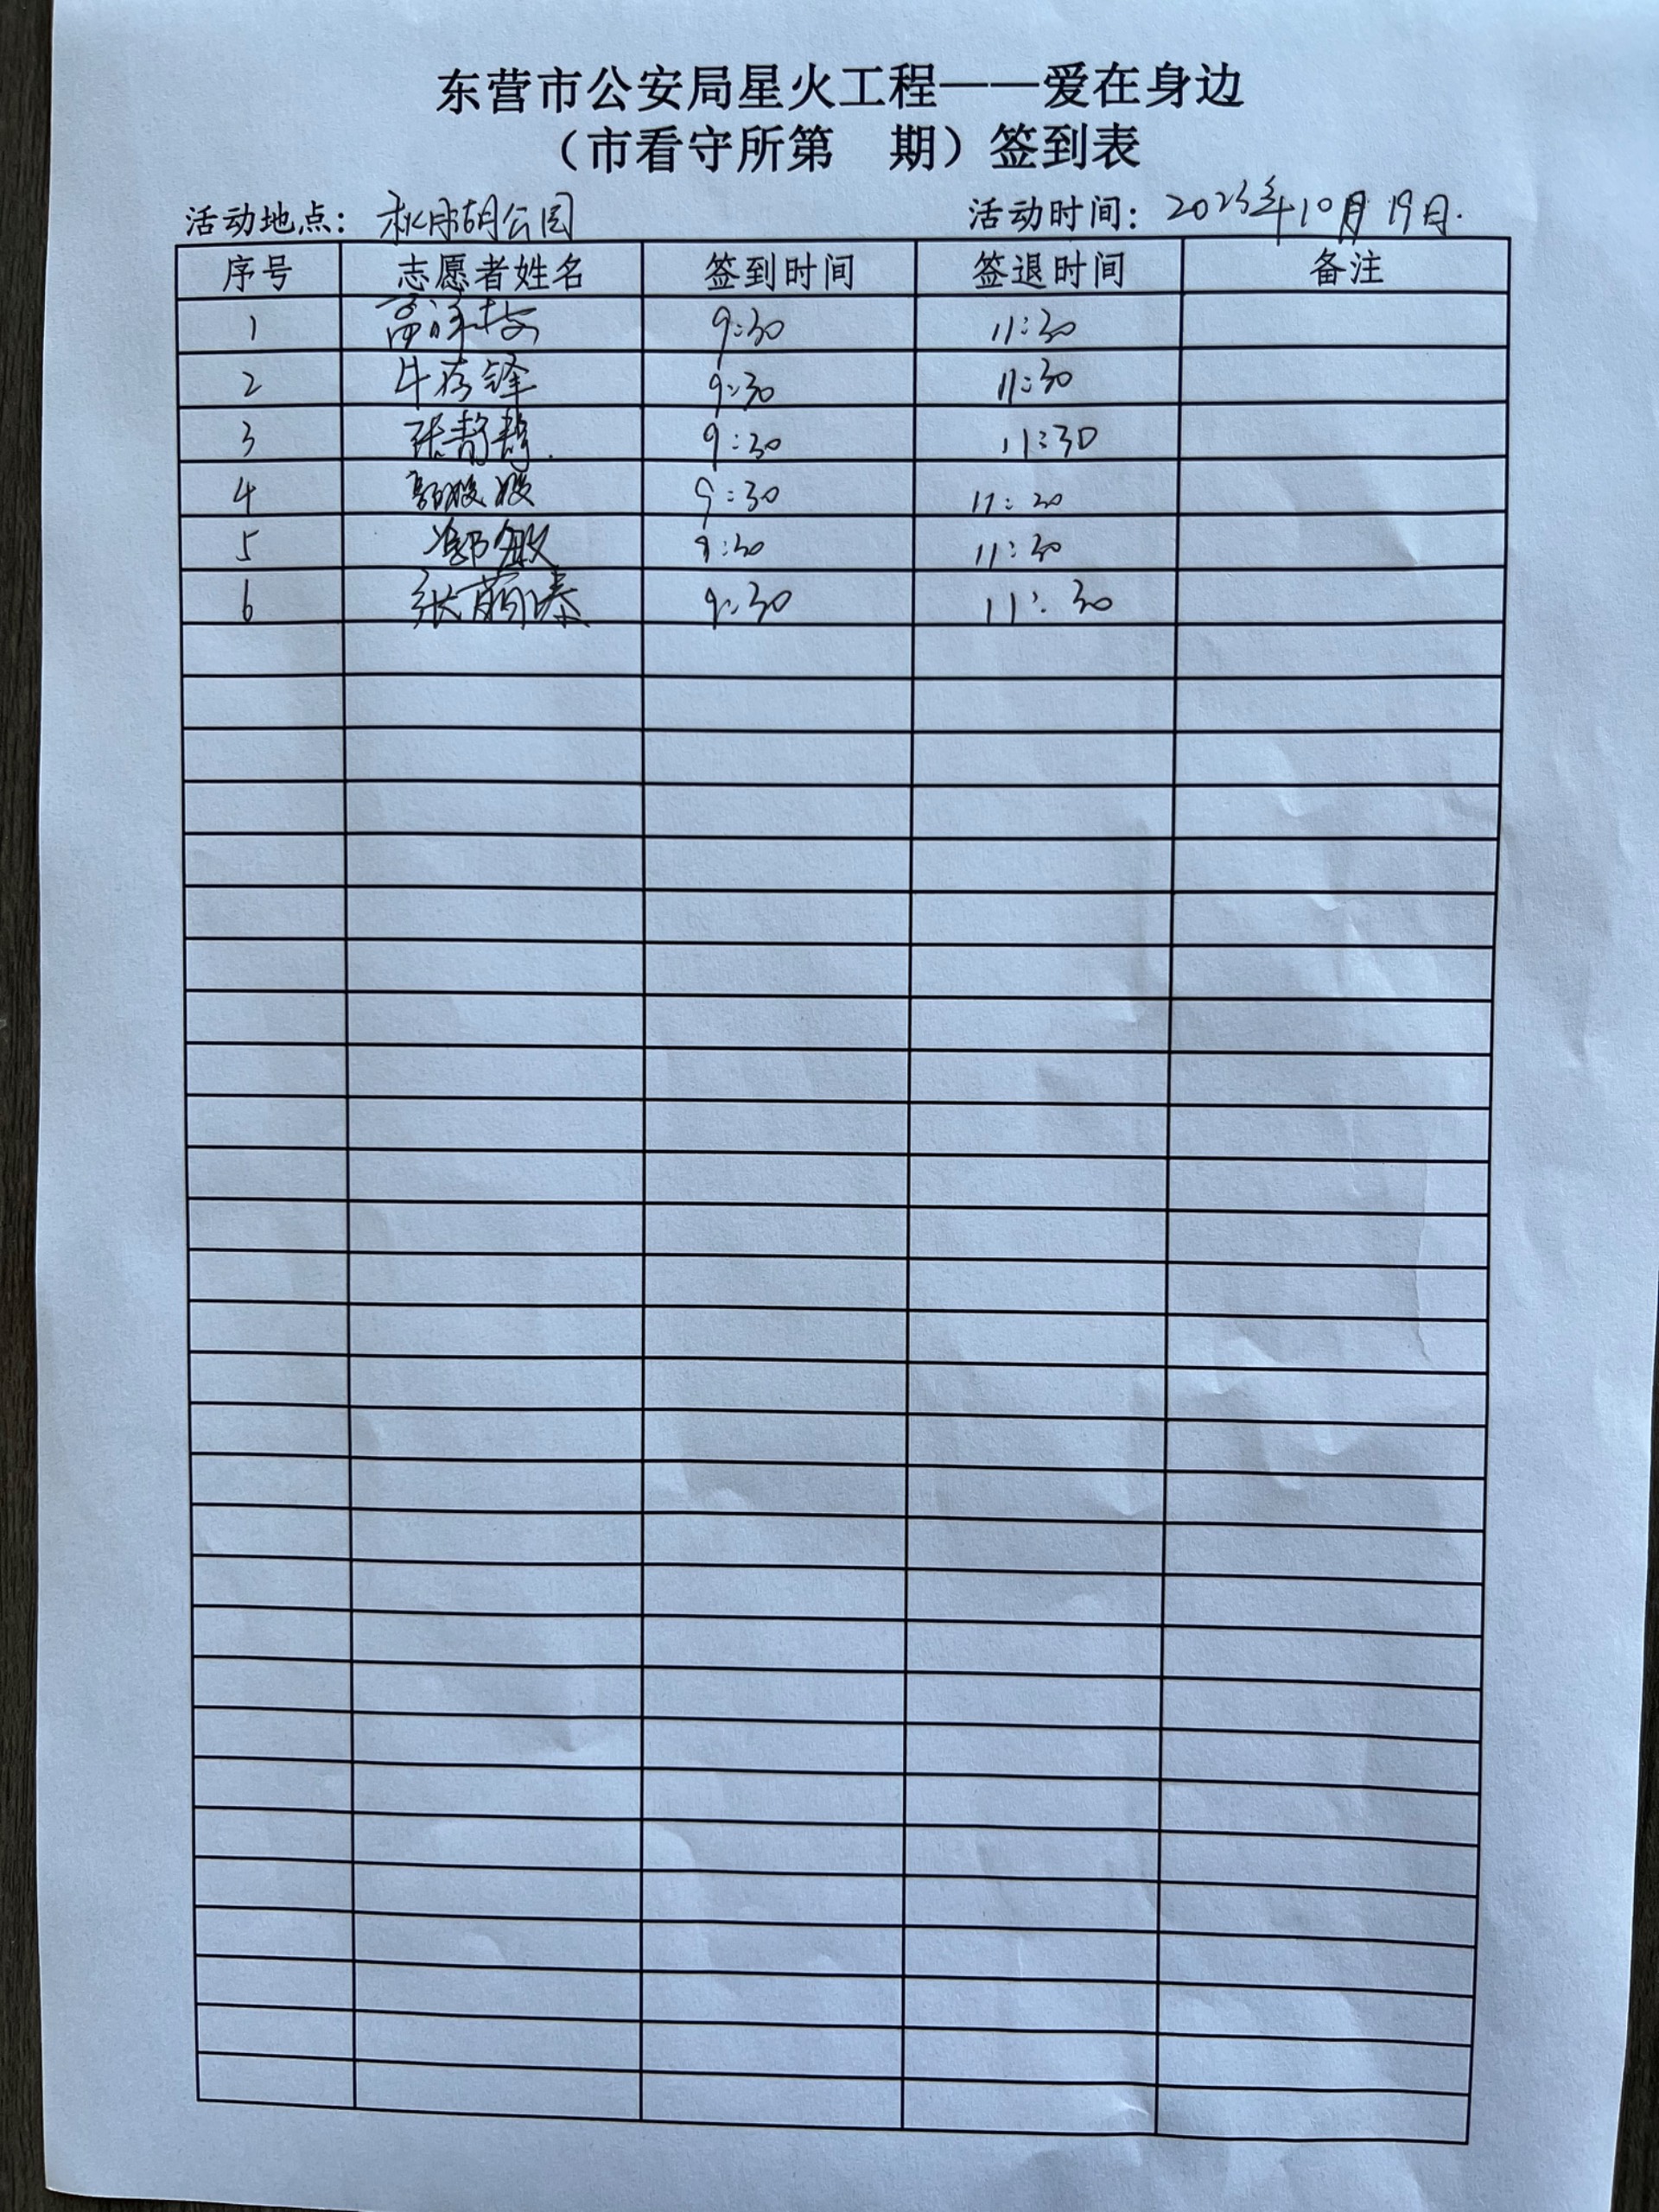 东营市公安局星火工程——爱在身边
（市看守所第 期）签到表
活动地点： 秋月湖公园 活动时间： 2023年10月19日.
序号 志愿者姓名 签到时间 签退时间 备注
1 9:30 11:30
2 牛存锋 9:30 11:30
3 张静静. 9:30 11:30
4 郭姣姣 9:30 11:30
5 郭敏 9:30 11:30
6 张蔚溱 9:30 11:30